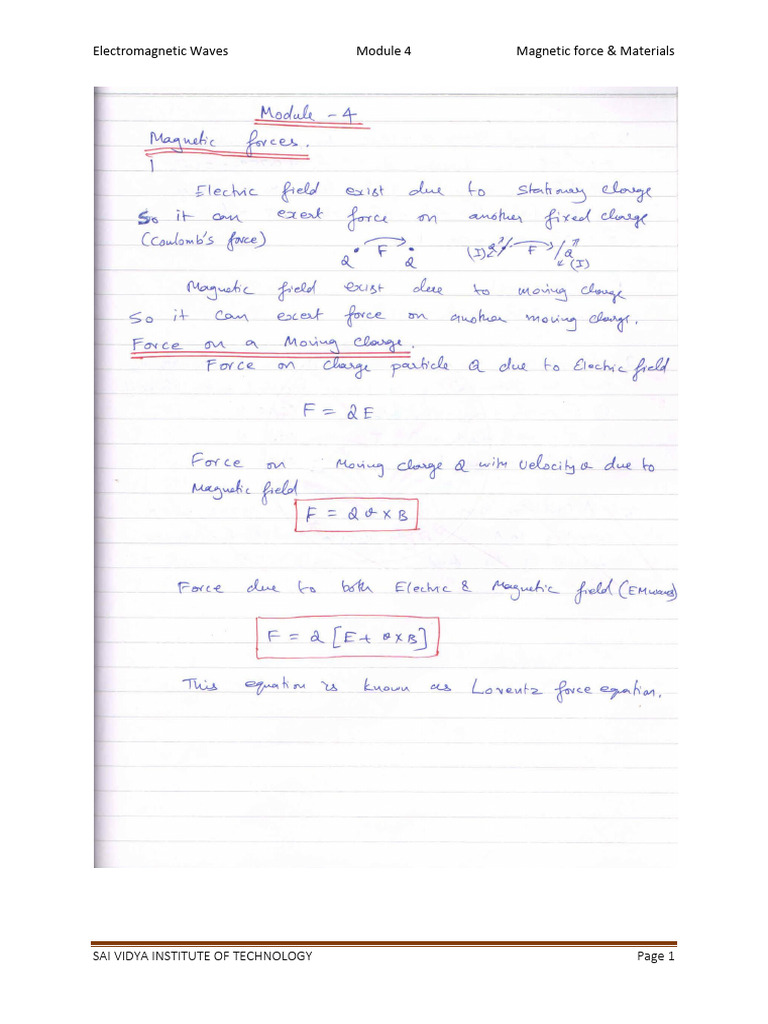 Electromagnetic Waves Module 4 Magnetic force & Materials
Module - 4
Magnetic forces.
Electric field exist due to stationary charge
So it can exert force on another fixed charge
(Coulomb's force)
Q F Q (I) Q F Q (I)
Magnetic field exist due to moving charge
So it can excert force on another moving charge.
Force on a Moving charge.
Force on charge particle Q due to Electric field
F = QE
Force on Moving charge Q with velocity v due to
Magnetic field
F = Q v × B
Force due to both Electric & Magnetic field (EM waves)
F = Q [E + v × B]
This equation is known as Lorentz force equation.
SAI VIDYA INSTITUTE OF TECHNOLOGY Page 1